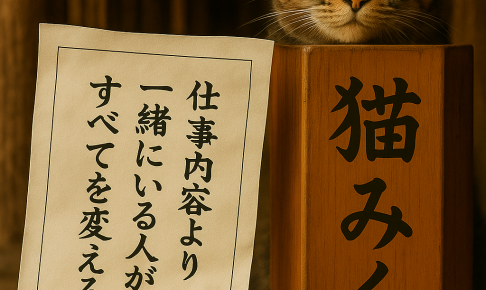 仕事内容より
一緒にいる人が
すべてを変える
猫み